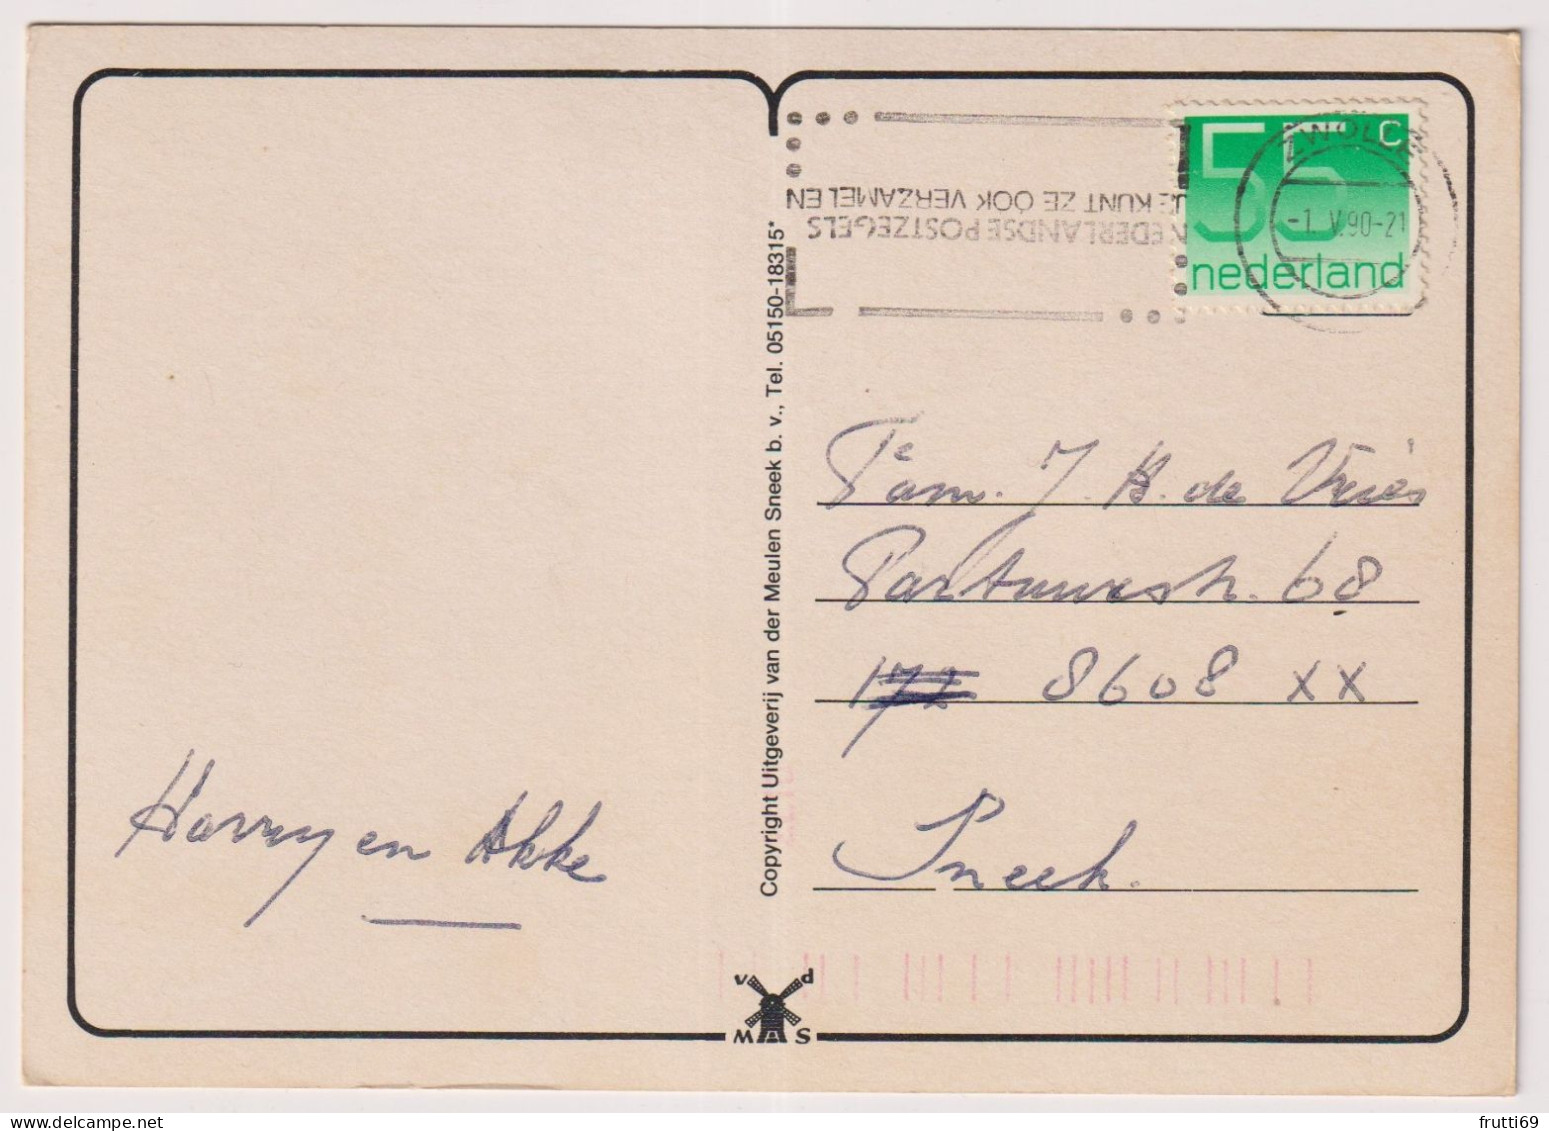 55 c
nederland
ZWOLLE
-1. V.90-21
NEDERLANDSE POSTZEGELS
JE KUNT ZE OOK VERZAMELEN
Copyright Uitgeverij van der Meulen Sneek b. v., Tel. 05150-18315*
Fam. J. H. de Vries
68
172 8608 XX
Sneek.
Harry en Akke
v d
M A S
frutti69